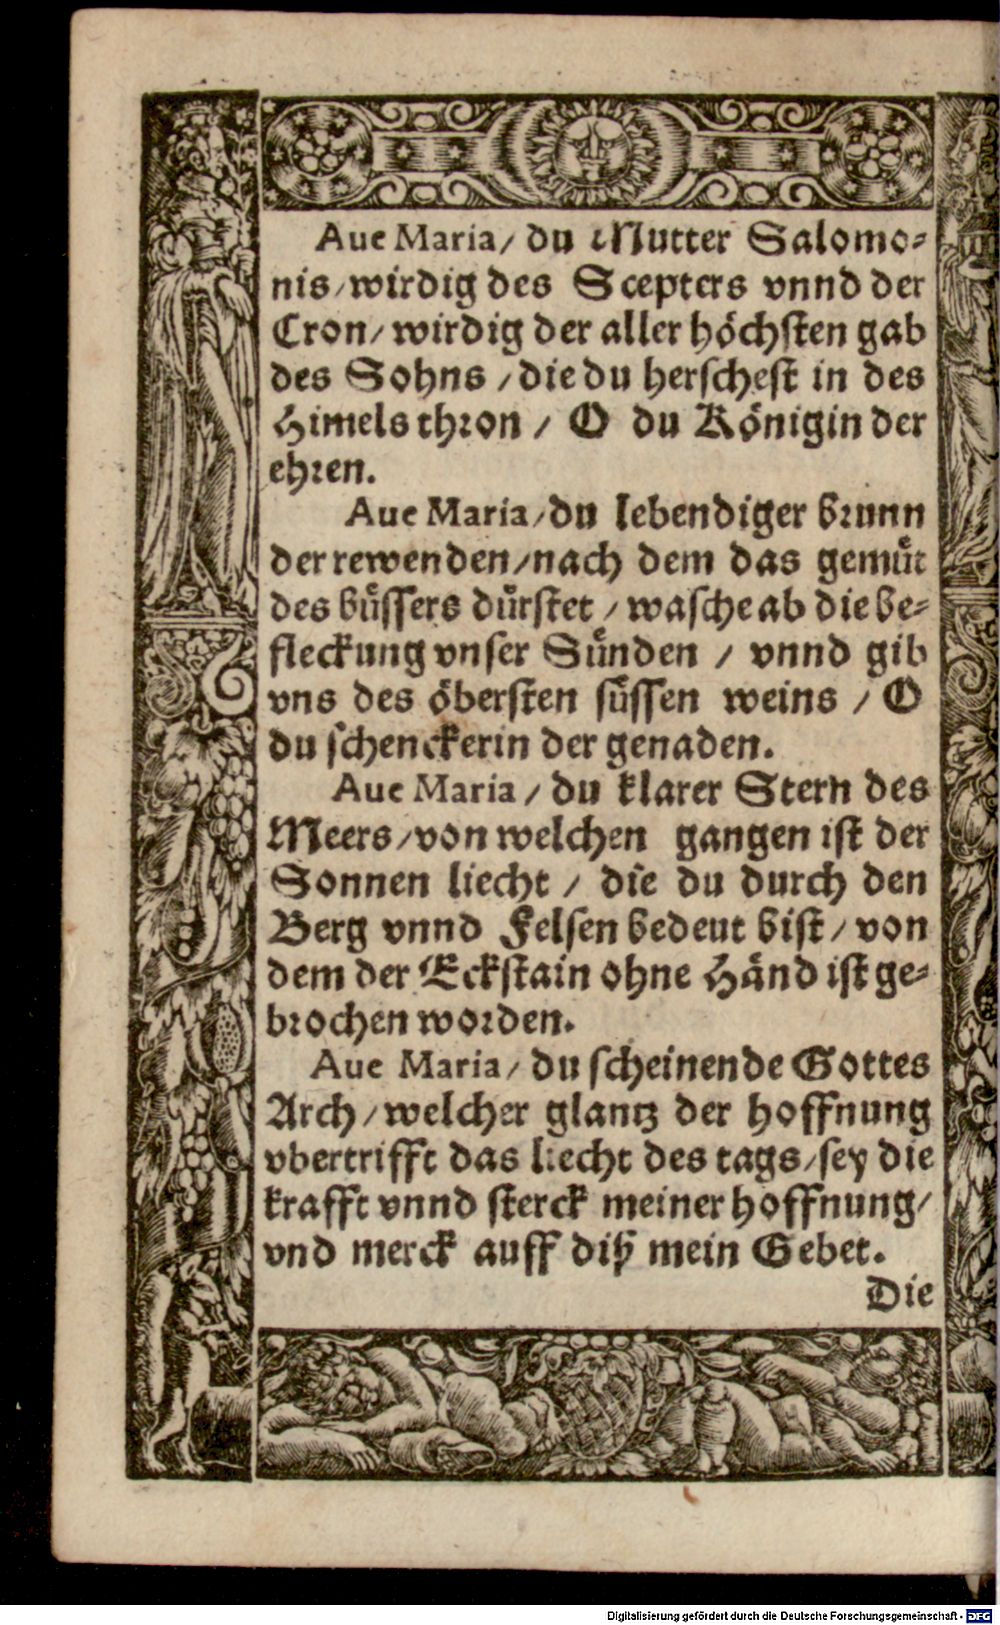 Aue Maria/ du Mutter Salomo⸗
nis/ wirdig des Scepters vnnd der
Cron/ wirdig der aller höchsten gab
des Sohns/ die du herschest in des
Himels thron/ O du Königin der
ehren.
Aue Maria/ du lebendiger brunn
der rewenden/ nach dem das gemuͤt
des buͤssers duͤrstet/ wasche ab die be⸗
fleckung vnser Suͤnden/ vnnd gib
vns des öbersten suͤssen weins/ O
du schenckerin der genaden.
Aue Maria/ du klarer Stern des
Meers/ von welchen gangen ist der
Sonnen liecht/ die du durch den
Berg vnnd Felsen bedeut bist/ von
dem der Eckstain ohne Händ ist ge⸗
brochen worden.
Aue Maria/ du scheinende Gottes
Arch/ welcher glantz der hoffnung
vbertrifft das liecht des tags/ sey die
krafft vnnd sterck meiner hoffnung/
vnd merck auff diß mein Gebet.
Die
Digitalisierung gefördert durch die Deutsche Forschungsgemeinschaft - DFG